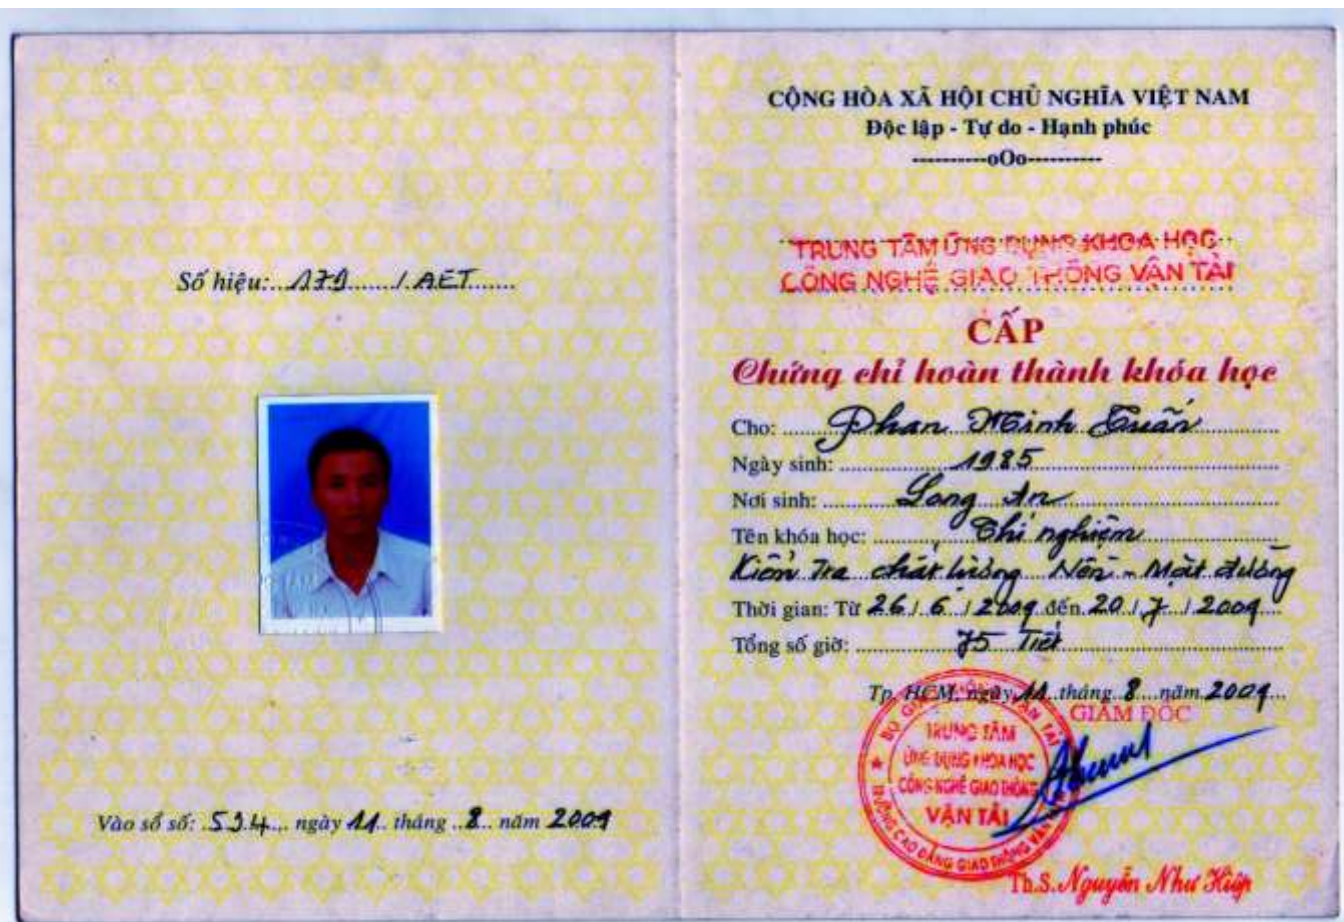 Số hiệu: 179 / AET
Vào sổ số: 534 ngày 11 tháng 8 năm 2009
CỘNG HÒA XÃ HỘI CHỦ NGHĨA VIỆT NAM
Độc lập - Tự do - Hạnh phúc
----------oOo----------
TRUNG TÂM ỨNG DỤNG KHOA HỌC
CÔNG NGHỆ GIAO THÔNG VẬN TẢI
CẤP
Chứng chỉ hoàn thành khóa học
Cho: Phan Minh Tuấn
Ngày sinh: 1985
Nơi sinh: Long An
Tên khóa học: Thí nghiệm
Kiểm Tra chất lượng Nền - Mặt đường
Thời gian: Từ 26 / 6 / 2009 đến 20 / 7 / 2009
Tổng số giờ: 75 Tiết
Tp. HCM, ngày 11 tháng 8 năm 2009
GIÁM ĐỐC
TRUNG TÂM
ỨNG DỤNG KHOA HỌC
CÔNG NGHỆ GIAO THÔNG
VẬN TẢI
TRƯỜNG CAO ĐẲNG GIAO THÔNG VẬN
Th.S. Nguyễn Như Hiệp